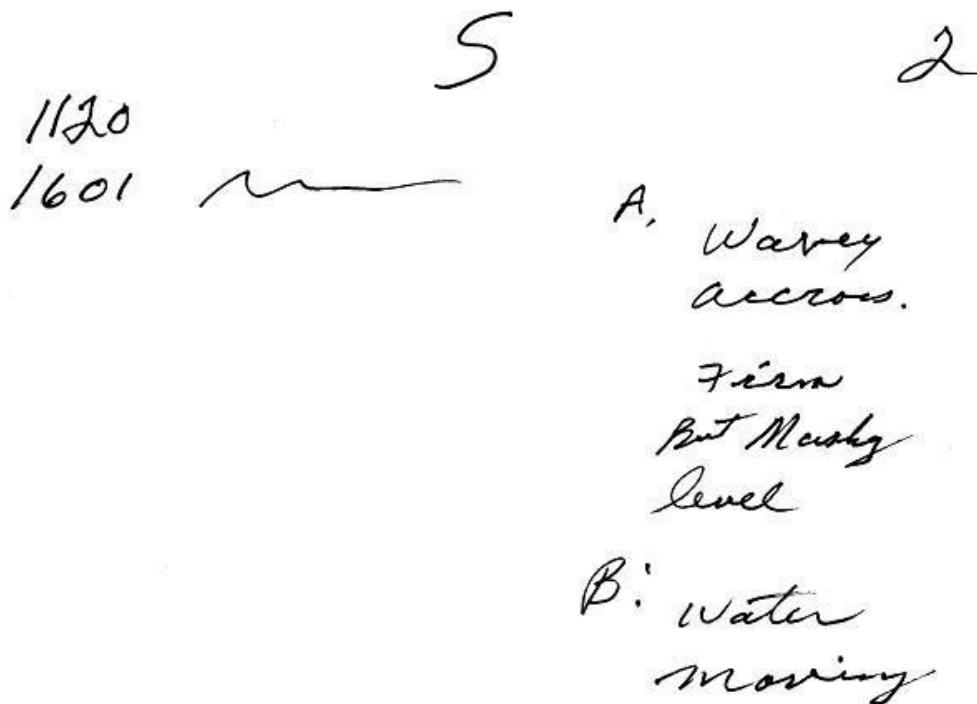 S 2
1120
1601
A.
Wavey
accross.
Firm
But Marshy
level
B:
Water
moving